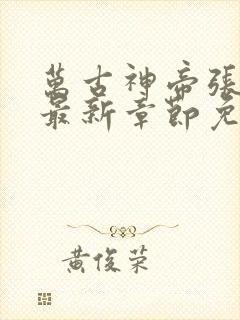 萬古神帝張
最新章節免
黃俊荣